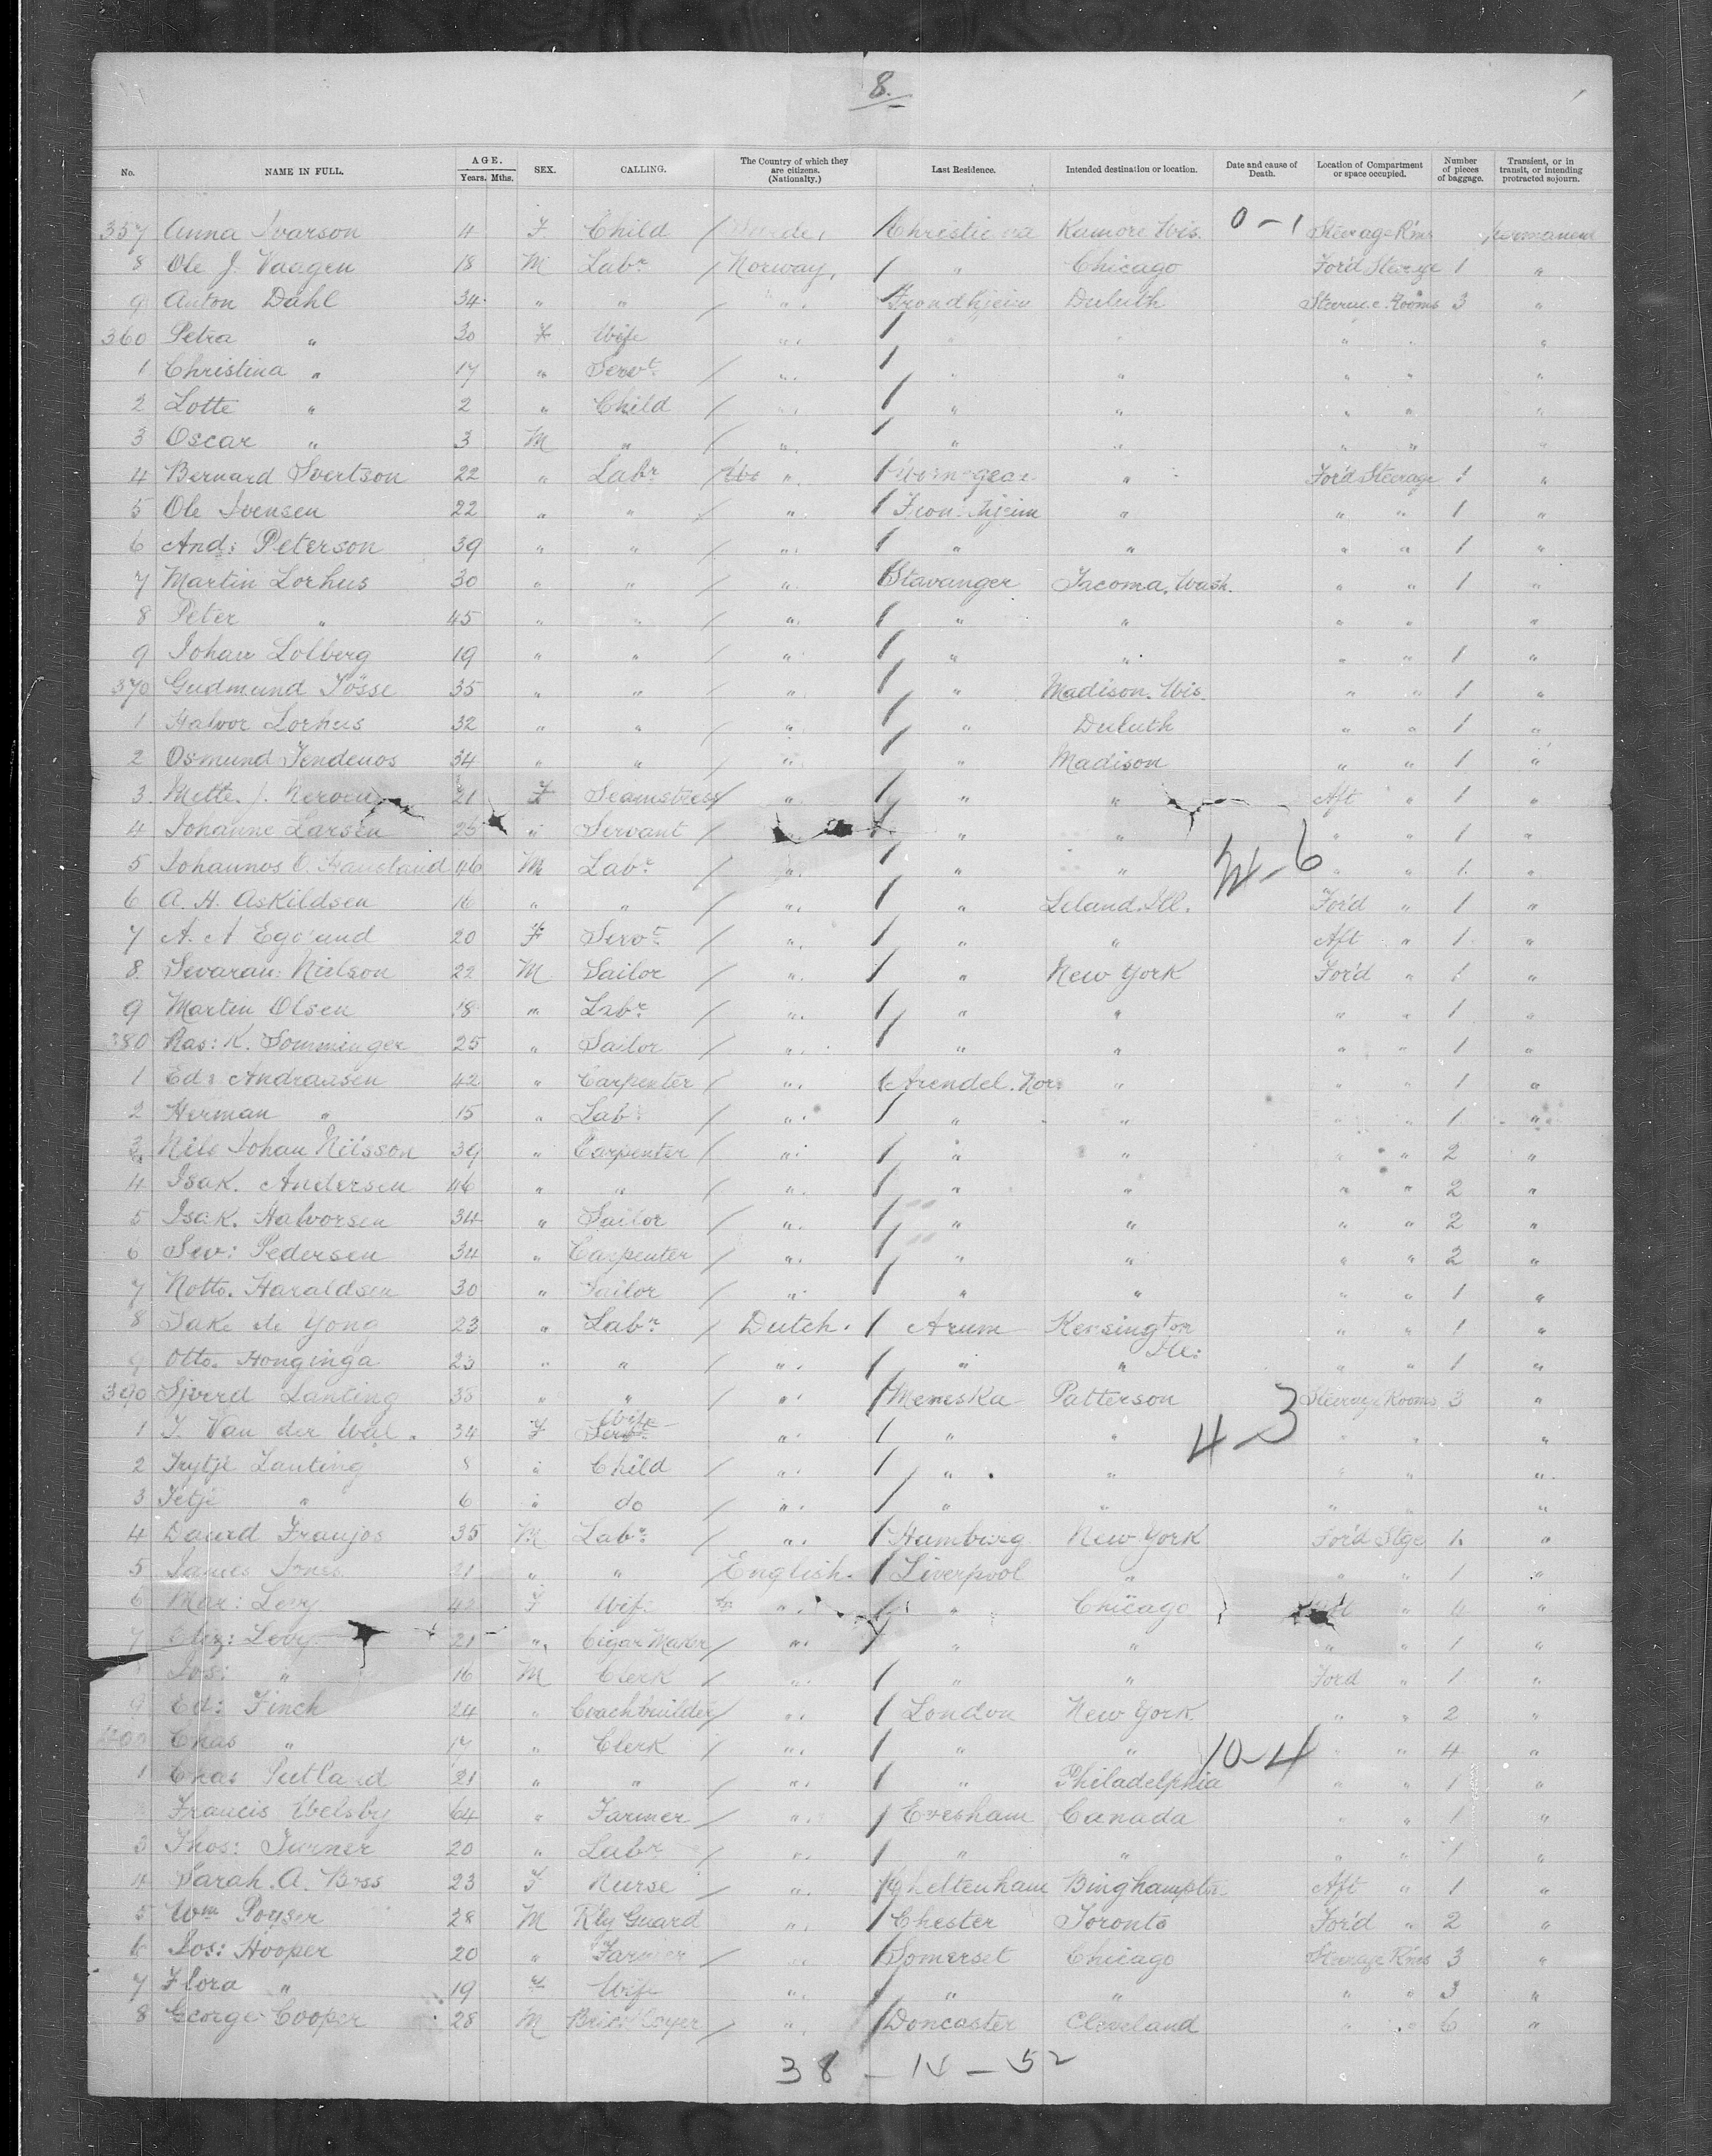 8.
No. NAME IN FULL. AGE. Years. Mths. SEX. CALLING. The Country of which they are citizens. (Nationalty.) Last Residence. Intended destination or location. Date and cause of Death. Location of Compartment or space occupied. Number of pieces of baggage. Transient, or in transit, or intending protracted sojourn.
357 Anna Ivarson 4 F Child / / Christiana Wis. 0-1 Steerage Rms permanent
8 Ole J. Vaagen 18 M Labr / Norway, / " Chicago For'd Steerage 1 "
9 Anton Dahl 34 " " / " / Trondhjeim Duluth Steerage Rooms 3 "
360 Petra " 30 F Wife " / " " " " "
1 Christina " 17 " Servt / " / " " " " "
2 Lotte " 2 " Child / " / " " " " "
3 Oscar " 3 M " / " / " " " " "
4 Bernard Svertson 22 " Labr " / " For'd Steerage 1 "
5 Ole Svensen 22 " " / " / Trondhjeim " " " 1 "
6 And: Peterson 39 " " / " / " " " " 1 "
7 Martin Lorhus 30 " " / " / Stavanger Tacoma, Wash. " " 1 "
8 Peter " 45 " " / " / " " " " "
9 Johan Lolberg 19 " " / " / " " " " 1 "
370 Gudmund Tösse 35 " " / " / " Madison. Wis. " " 1 "
1 Halvor Lorhus 32 " " / " / " Duluth " " 1 "
2 Osmund Tendenos 34 " " / " / " Madison " " 1 "
3 Mette. J. Nerven 21 F Seamstress / " / " " Aft " 1 "
4 Johanne Larsen 25 " Servant / " / " " " " 1 "
5 Johannes O. 46 M Labr / " / " " 34-6 " " 1 "
6 A. H. Askildsen 16 " " / " / " Leland. Ill. For'd " 1 "
7 A. A 20 F Servt / " / " " Aft " 1 "
8 Nielson 22 M Sailor / " / " New York For'd " 1 "
9 Martin Olsen 18 " Labr / " / " " " " 1 "
380 Ras: K. Somminger 25 " Sailor / " / " " " " 1 "
1 Ed: Andraasen 42 " Carpenter / " / Arendel. Nor: " " " 1 "
2 Herman " 15 " Labr / " / " " " " 1 "
3 Nils Johan Nilsson 39 " Carpenter / " / " " " " 2 "
4 Isak. Andersen 46 " " / " / " " " " 2 "
5 Isak. Halvorsen 34 " Sailor / " / " " " " 2 "
6 Sev: Pedersen 34 " Carpenter / " / " " " " 2 "
7 Notto. Haraldsen 30 " Sailor / " / " " " " 1 "
8 Jake de Yong 23 " Labr / Dutch. / Arum Kensington Ill: " " 1 "
9 Otto. Honginga 23 " " / " / " " " " 1 "
390 Sjoerd Lanting 35 " " / " / Meneska Patterson Steerage Rooms 3 "
1 T. Van der Wal. 34 F Wife Servt " / " " 4-3 " " "
2 Trytje Lanting 8 " Child / " / " " " " "
3 Tetje " 6 " do / " / " " " " "
4 David Franjos 35 M Labr / " / Hamburg New York For'd Stge 1. "
5 James Jones 21 " " English. / Liverpool " " " 1 "
6 Mar: Levy 42 F Wife " / " Chicago Aft " 4 "
7 Eliz: Levy 21 " Cigar Maker / " / " " " " 1 "
Jos: " 16 M Clerk / " / " " Ford " 1 "
9 Ed: Finch 24 " Coachbuilder / " / London New York " " 2 "
400 Chas " 17 " Clerk / " / " " 10-4 " " 4 "
1 Chas 21 " " / " / " Philadelphia " " 1 "
Francis Welsby 64 " Farmer / " / Evesham Canada " " 1 "
3 Thos: Turner 20 " Labr / " / " " " " 1 "
4 Sarah. A. Boss 23 F Nurse / " / Cheltenham Binghampton Aft " 1 "
5 Wm Poyser 28 M R'ly Guard " / Chester Toronto For'd " 2 "
6 Jos: Hooper 20 " Farmer / " / Somerset Chicago Steerage Rms 3 "
7 Flora " 19 F Wife / " / " " " " 3 "
8 George Cooper 28 M Bricklayer / " / Doncaster Cleveland " " 6 "
38 - 14 - 52